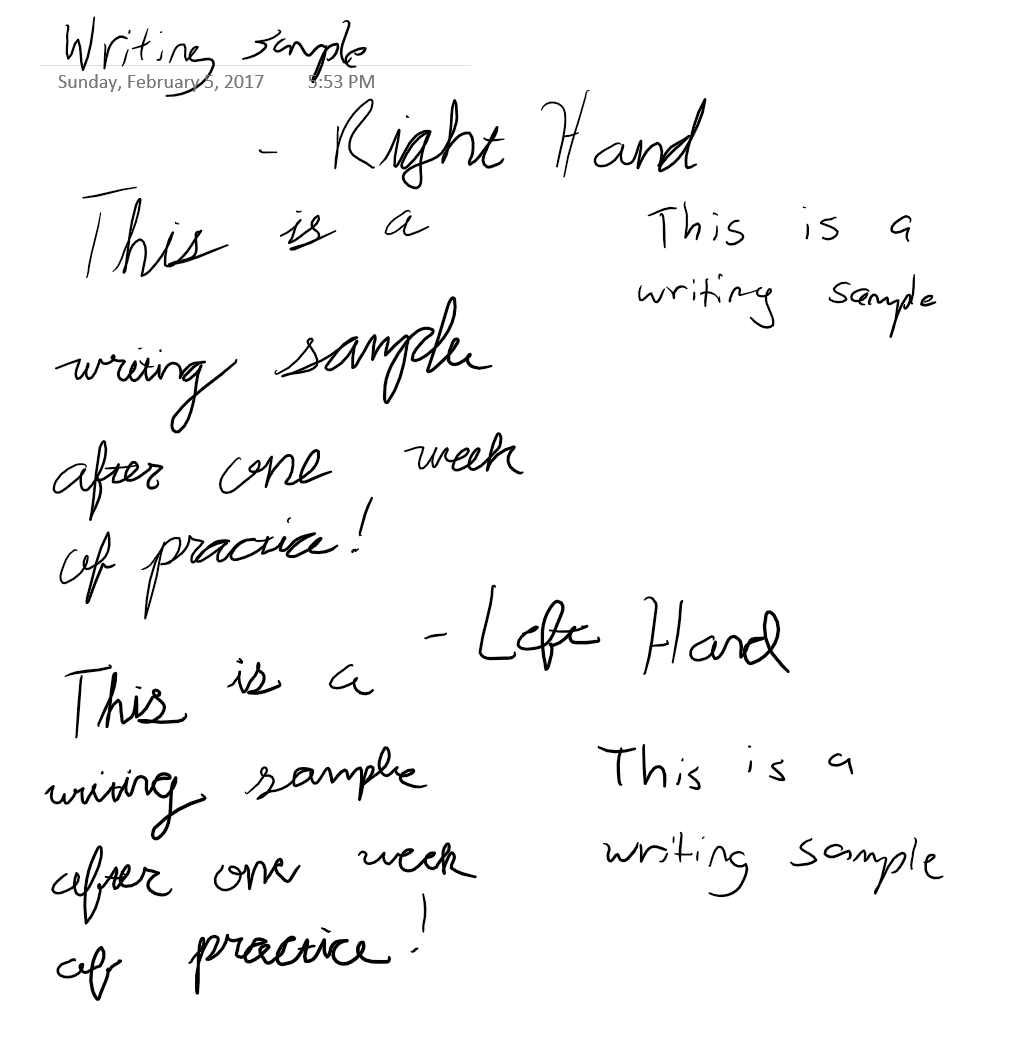 Writing sample
Sunday, February 5, 2017 5:53 PM
- Right Hand
This is a
writing sample
after one week
of practice!
This is a
writing sample
- Left Hand
This is a
writing sample
after one week
of practice!
This is a
writing sample